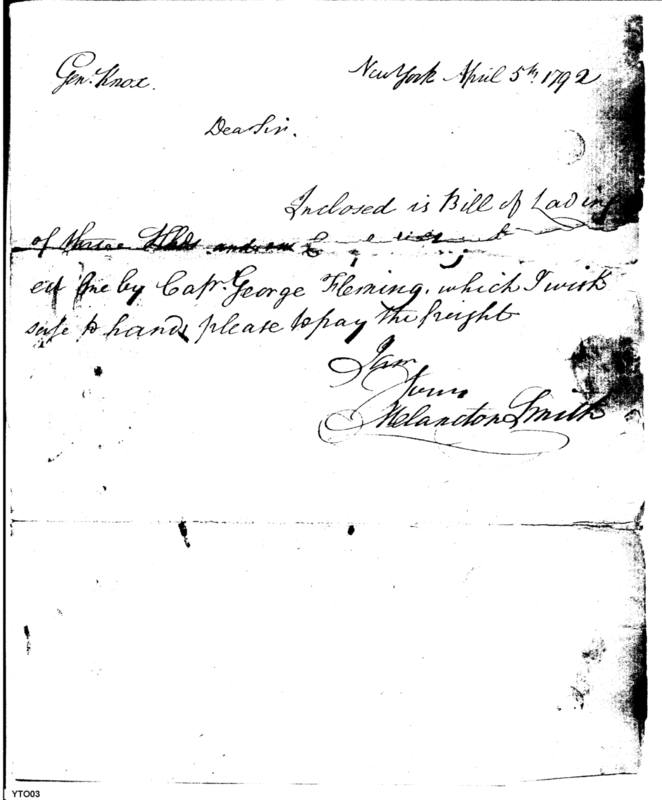 Genl. Knox.
New York April 5th. 1792
Dear Sir.
Inclosed is Bill of Lading
of three Hhds and
by Capt. George Fleming, which I wish
safe to hand, please to pay the freight
I am
Yours
Melancton Smith
YTO03